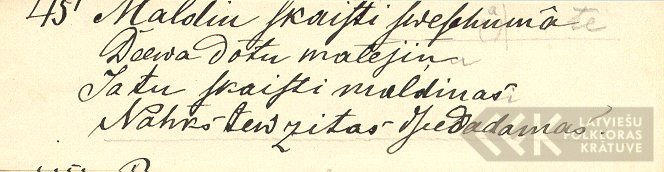 45. Maldin skaisti swešumâ te
Deewa dotu matesiņa
Ja tu skaisti maldinas
Nahks tew zitas dseedadamas.
LATVIEŠU
FOLKLORAS
KRĀTUVE